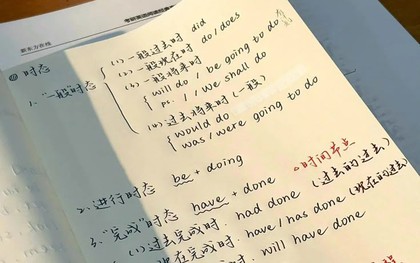 考研英语阅读
新东方在线
时态
1. "一般时态
(1) 一般过去时 did
(2) 一般现在时 do/does
(3) 一般将来时
will do / be going to do
I / we shall do
(4) 过去将来时(一般)
would do
was/were going to do
2. 进行时态 be + doing
3. "完成"时态 have + done 时间节点
(1) 过去完成时: had done (过去的过去)
现在完成时: have / has done (现在的过去)
时: will have done